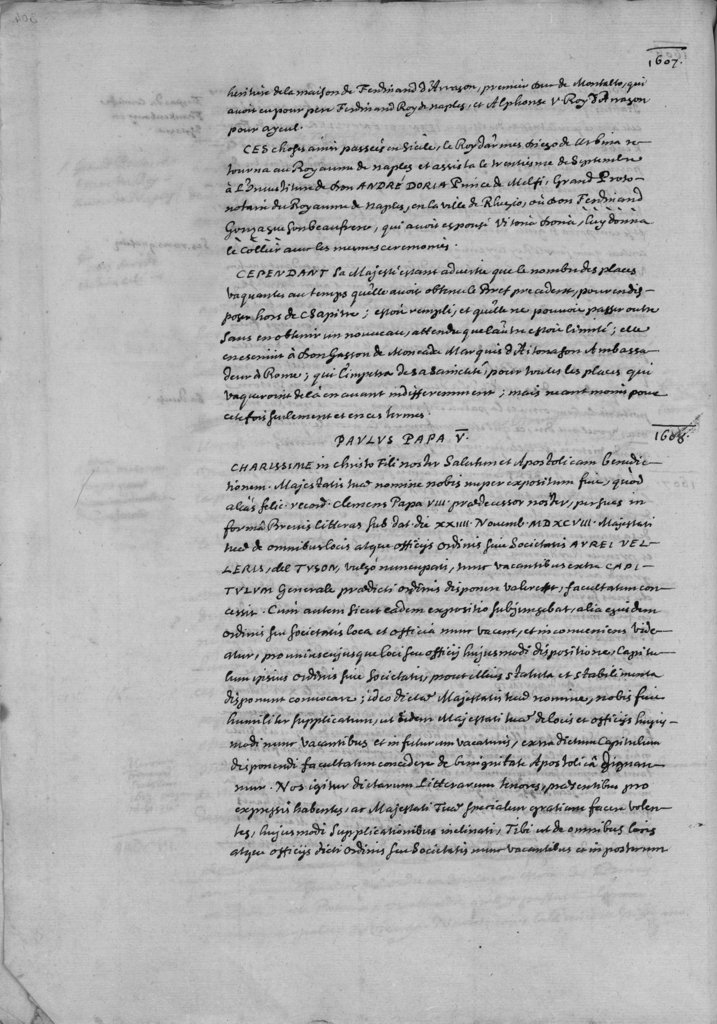 1607.
heritiere de la maison de Ferdinand d'Arragon, premier Duc de Montalto, qui
avoit eu pour pere Ferdinand Roy de naples, et Alphonse V. Roy d'Arragon
pour ayeul.
CES choses ainsi passées en Sicile, le Roy d'armes Diego de Urbina re-
tourna au Royaume de naples et assista le trentiesme de Septembre
à L'Investiture de Don ANDRÉ DORIA Prince de Melfi, Grand Proto-
notaire du Royaume de Naples, en la ville de Rhegio, où Don Ferdinand
Gonzague son beaufrere, qui avoit espousé Vitoria Doria, luy donna
le Collier avec les mesmes ceremonies.
CEPENDANT Sa Majesté estant advertie que le nombre des places
vaquantes au temps qu'elle avoit obtenu le Bref precedent, pour en dis-
poser hors de Chapitre; estoit rempli, et qu'elle ne pouvoit passer outre
sans en obtenir un nouveau, attendu que l'autre estoit limité; elle
en escrivit à Don Gaston de Moncada Marquis d'Aitona son Ambassa-
deur à Rome; qui l'impetra de sa Sainteté, pour toutes les places qui
vaqueroient de là en avant indifferemment; mais neant moins pour
cete fois seulement et en ces termes.
PAVLVS PAPA V.
1608.
CHARISSIME in christo Fili noster Salutem et Apostolicam benedic-
tionem. Majestatis tuæ nomine nobis nuper expositum fuit, quòd
aliàs felic. record. Clemens Papa VIII. prædecessor noster, per suas in
formâ Brevis litteras sub dat. die XXIIII. Novemb. MDXCVIII. Majestati
tuæ de omnibus locis atque officijs ordinis seu Societatis AVREI VEL-
LERIS, del TVSON, vulgò nuncupati, tunc vacantibus extra CAPI-
TVLVM Generale prædicti ordinis disponere valeret, facultatem con-
cessit. Cùm autem sicut eadem expositio subjungebat, alia ejusdem
ordinis seu societatis loca et officia nunc vacent, et inconveniens vide-
atur, pro uniuscujusque loci seu officij hujusmodi dispositione, Capitu-
lum ipsius ordinis seu Societatis, prout illius statuta et stabilimenta
disponunt convocare; ideo dictæ Majestatis tuæ nomine, nobis fuit
humiliter supplicatum, ut eidem Majestati tuæ de locis et officijs hujus-
modi nunc vacantibus et in futurum vacaturis, extra dictum Capitulum
disponendi facultatem concedere de benignitate Apostolicâ dignare-
mur. Nos igitur dictarum Litterarum tenores, præsentibus pro
expressis habentes, ac Majestati Tuæ specialem gratiam facere volen-
tes, hujusmodi supplicationibus inclinati, Tibi ut de omnibus locis
atque officijs dicti ordinis seu Societatis nunc vacantibus et in posterum